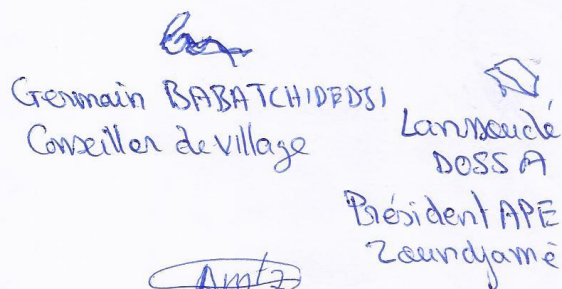 Germain BABATCHIDEDJI
Conseiller de village
Lanmoudé
DOSSA
Président APE
Zoundjamè